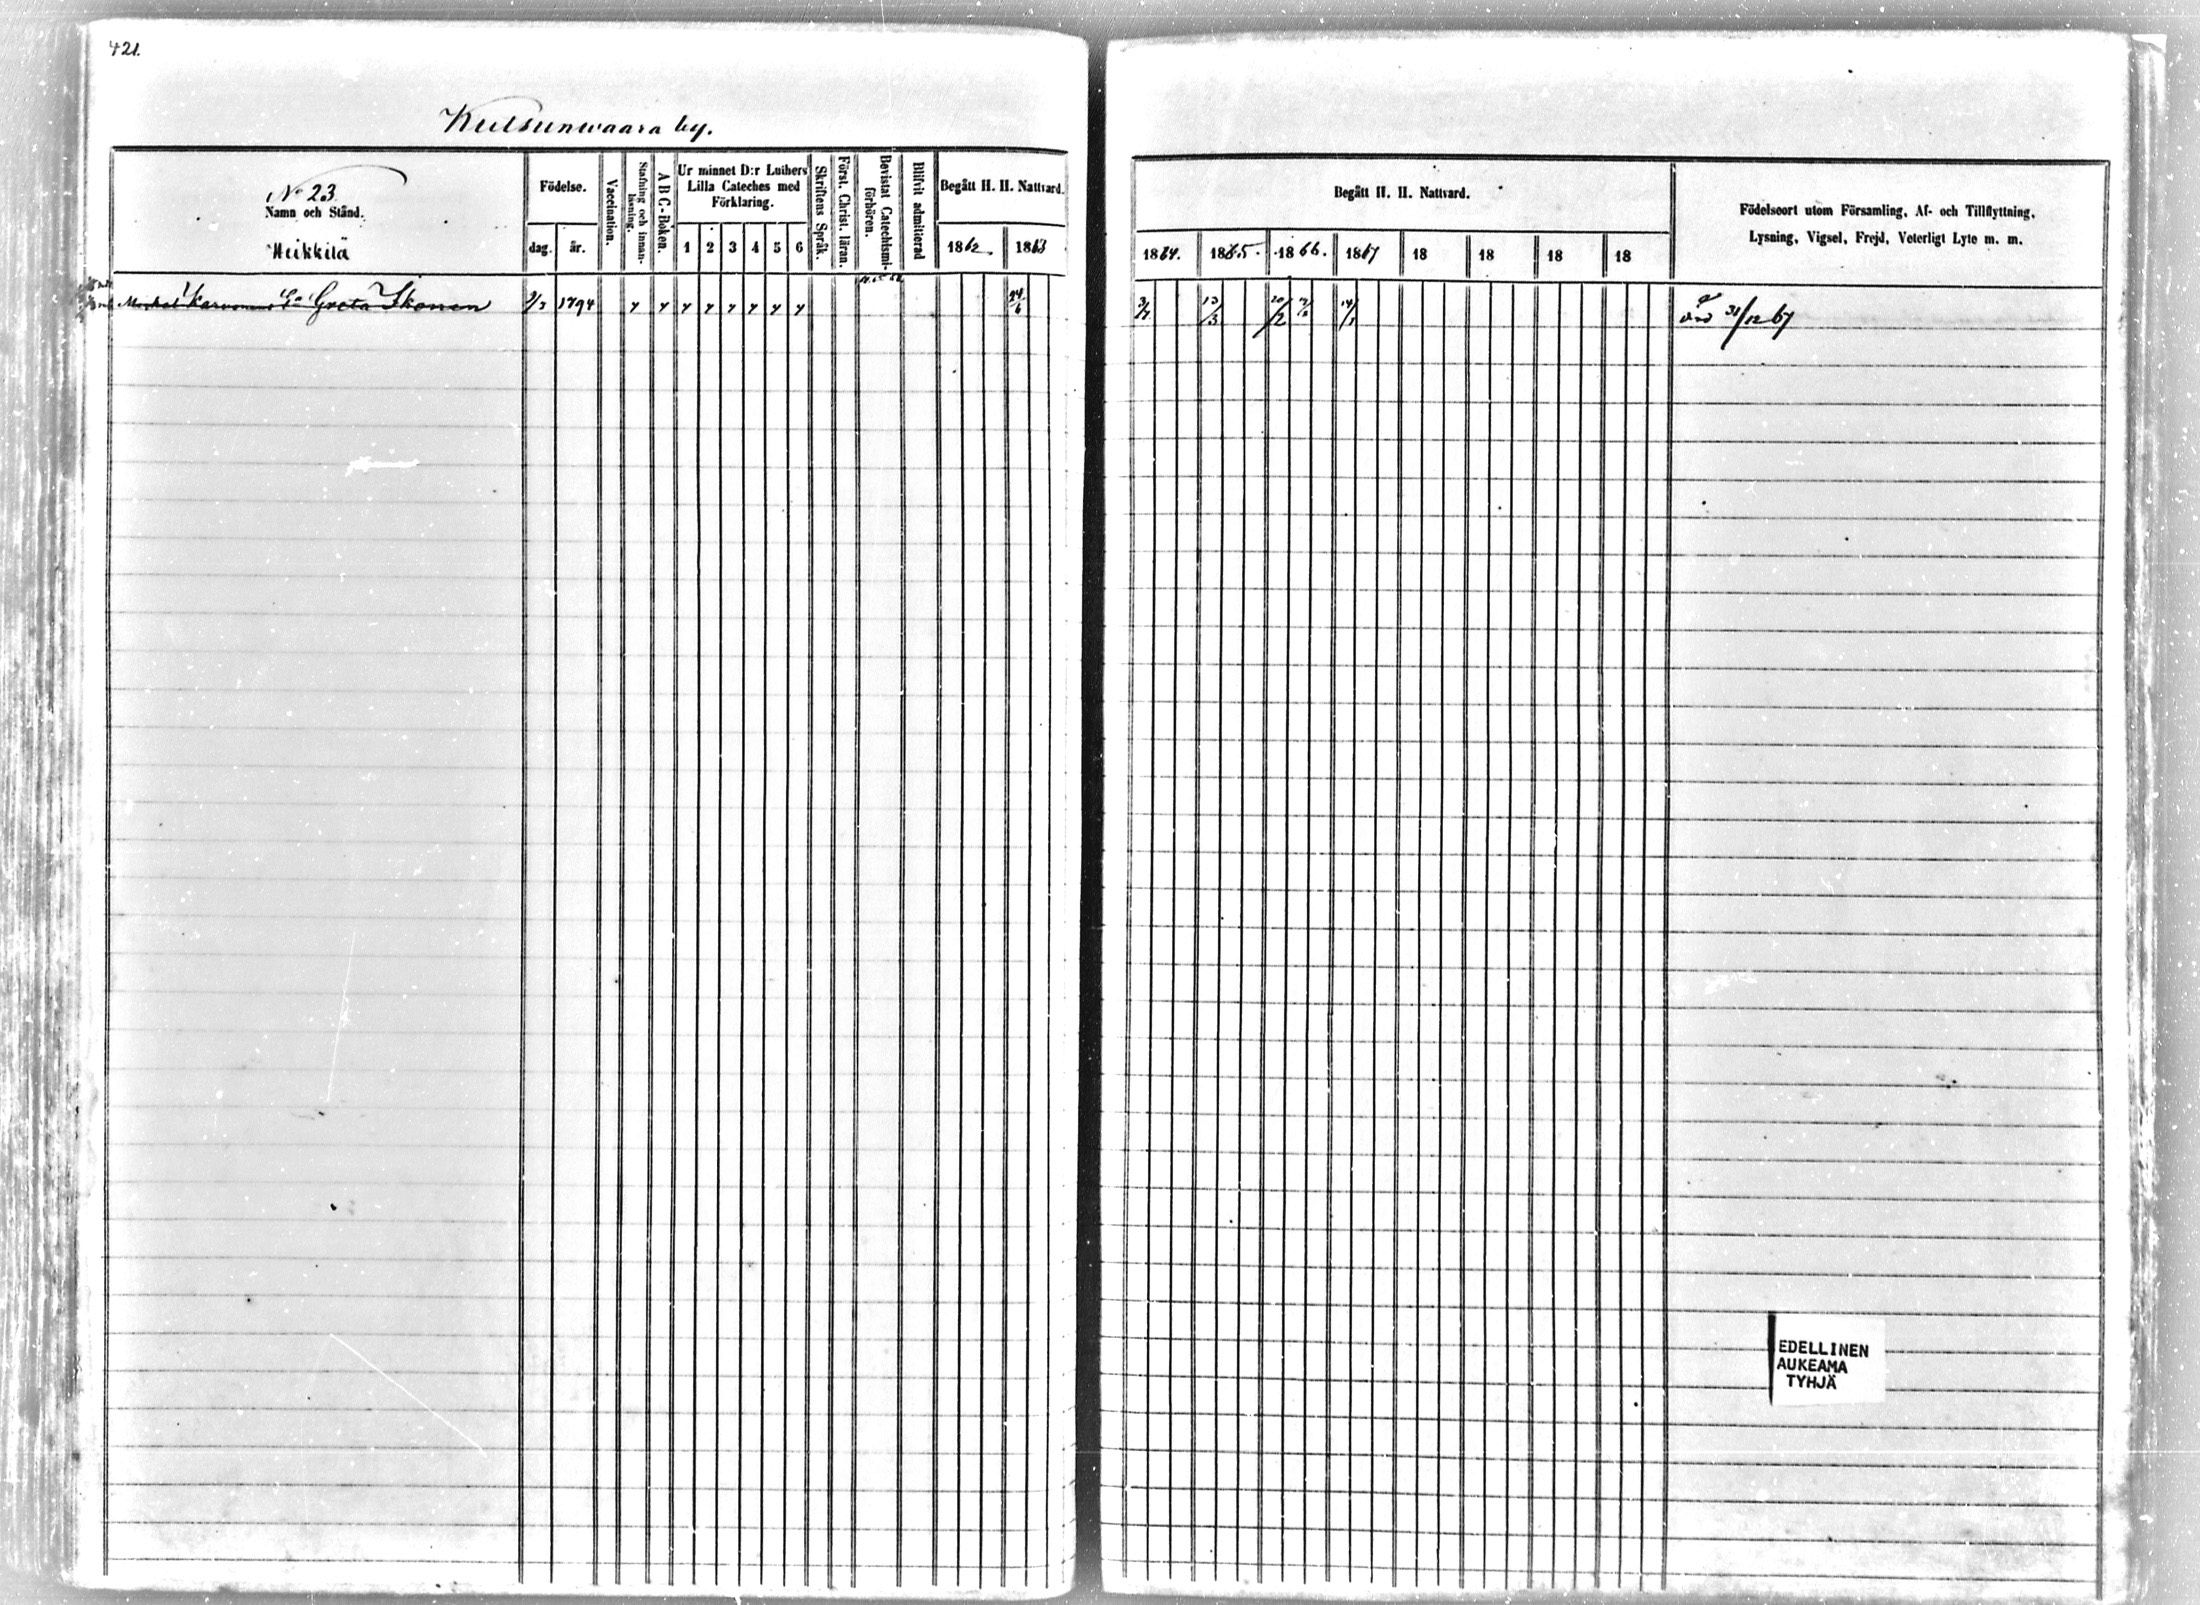 421.
Kutsunwaara by.
No 23.
Namn och Stånd.
Heikkilä
Födelse.
dag. år.
Vaccination.
Stafning och innan-
läsning.
A B C-Boken.
Ur minnet D:r Luthers
Lilla Cateches med
Förklaring.
1 2 3 4 5 6
Skriftens Språk.
Först. Christ. läran.
Bevistat Catechismi-
förhören.
Blifvit admitterad
Begått H. H. Nattvard.
1862 1863
Karvonens Greta Ikonen 9/3 1794 24/6
Begått H. H. Nattvard.
1864. 1865. 1866. 1867 18 18 18 18
Födelseort utom Församling, Af- och Tillflyttning,
Lysning, Vigsel, Frejd, Veterligt Lyte m. m.
3/7 13/3 20/2 14/1 31/12 67
EDELLINEN
AUKEAMA
TYHJÄ